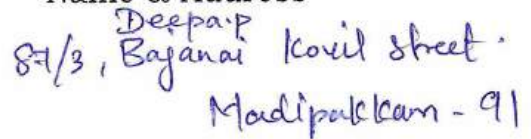 Name & Address
Deepa.p
87/3, Bajanai Kovil street.
Madipakkam - 91